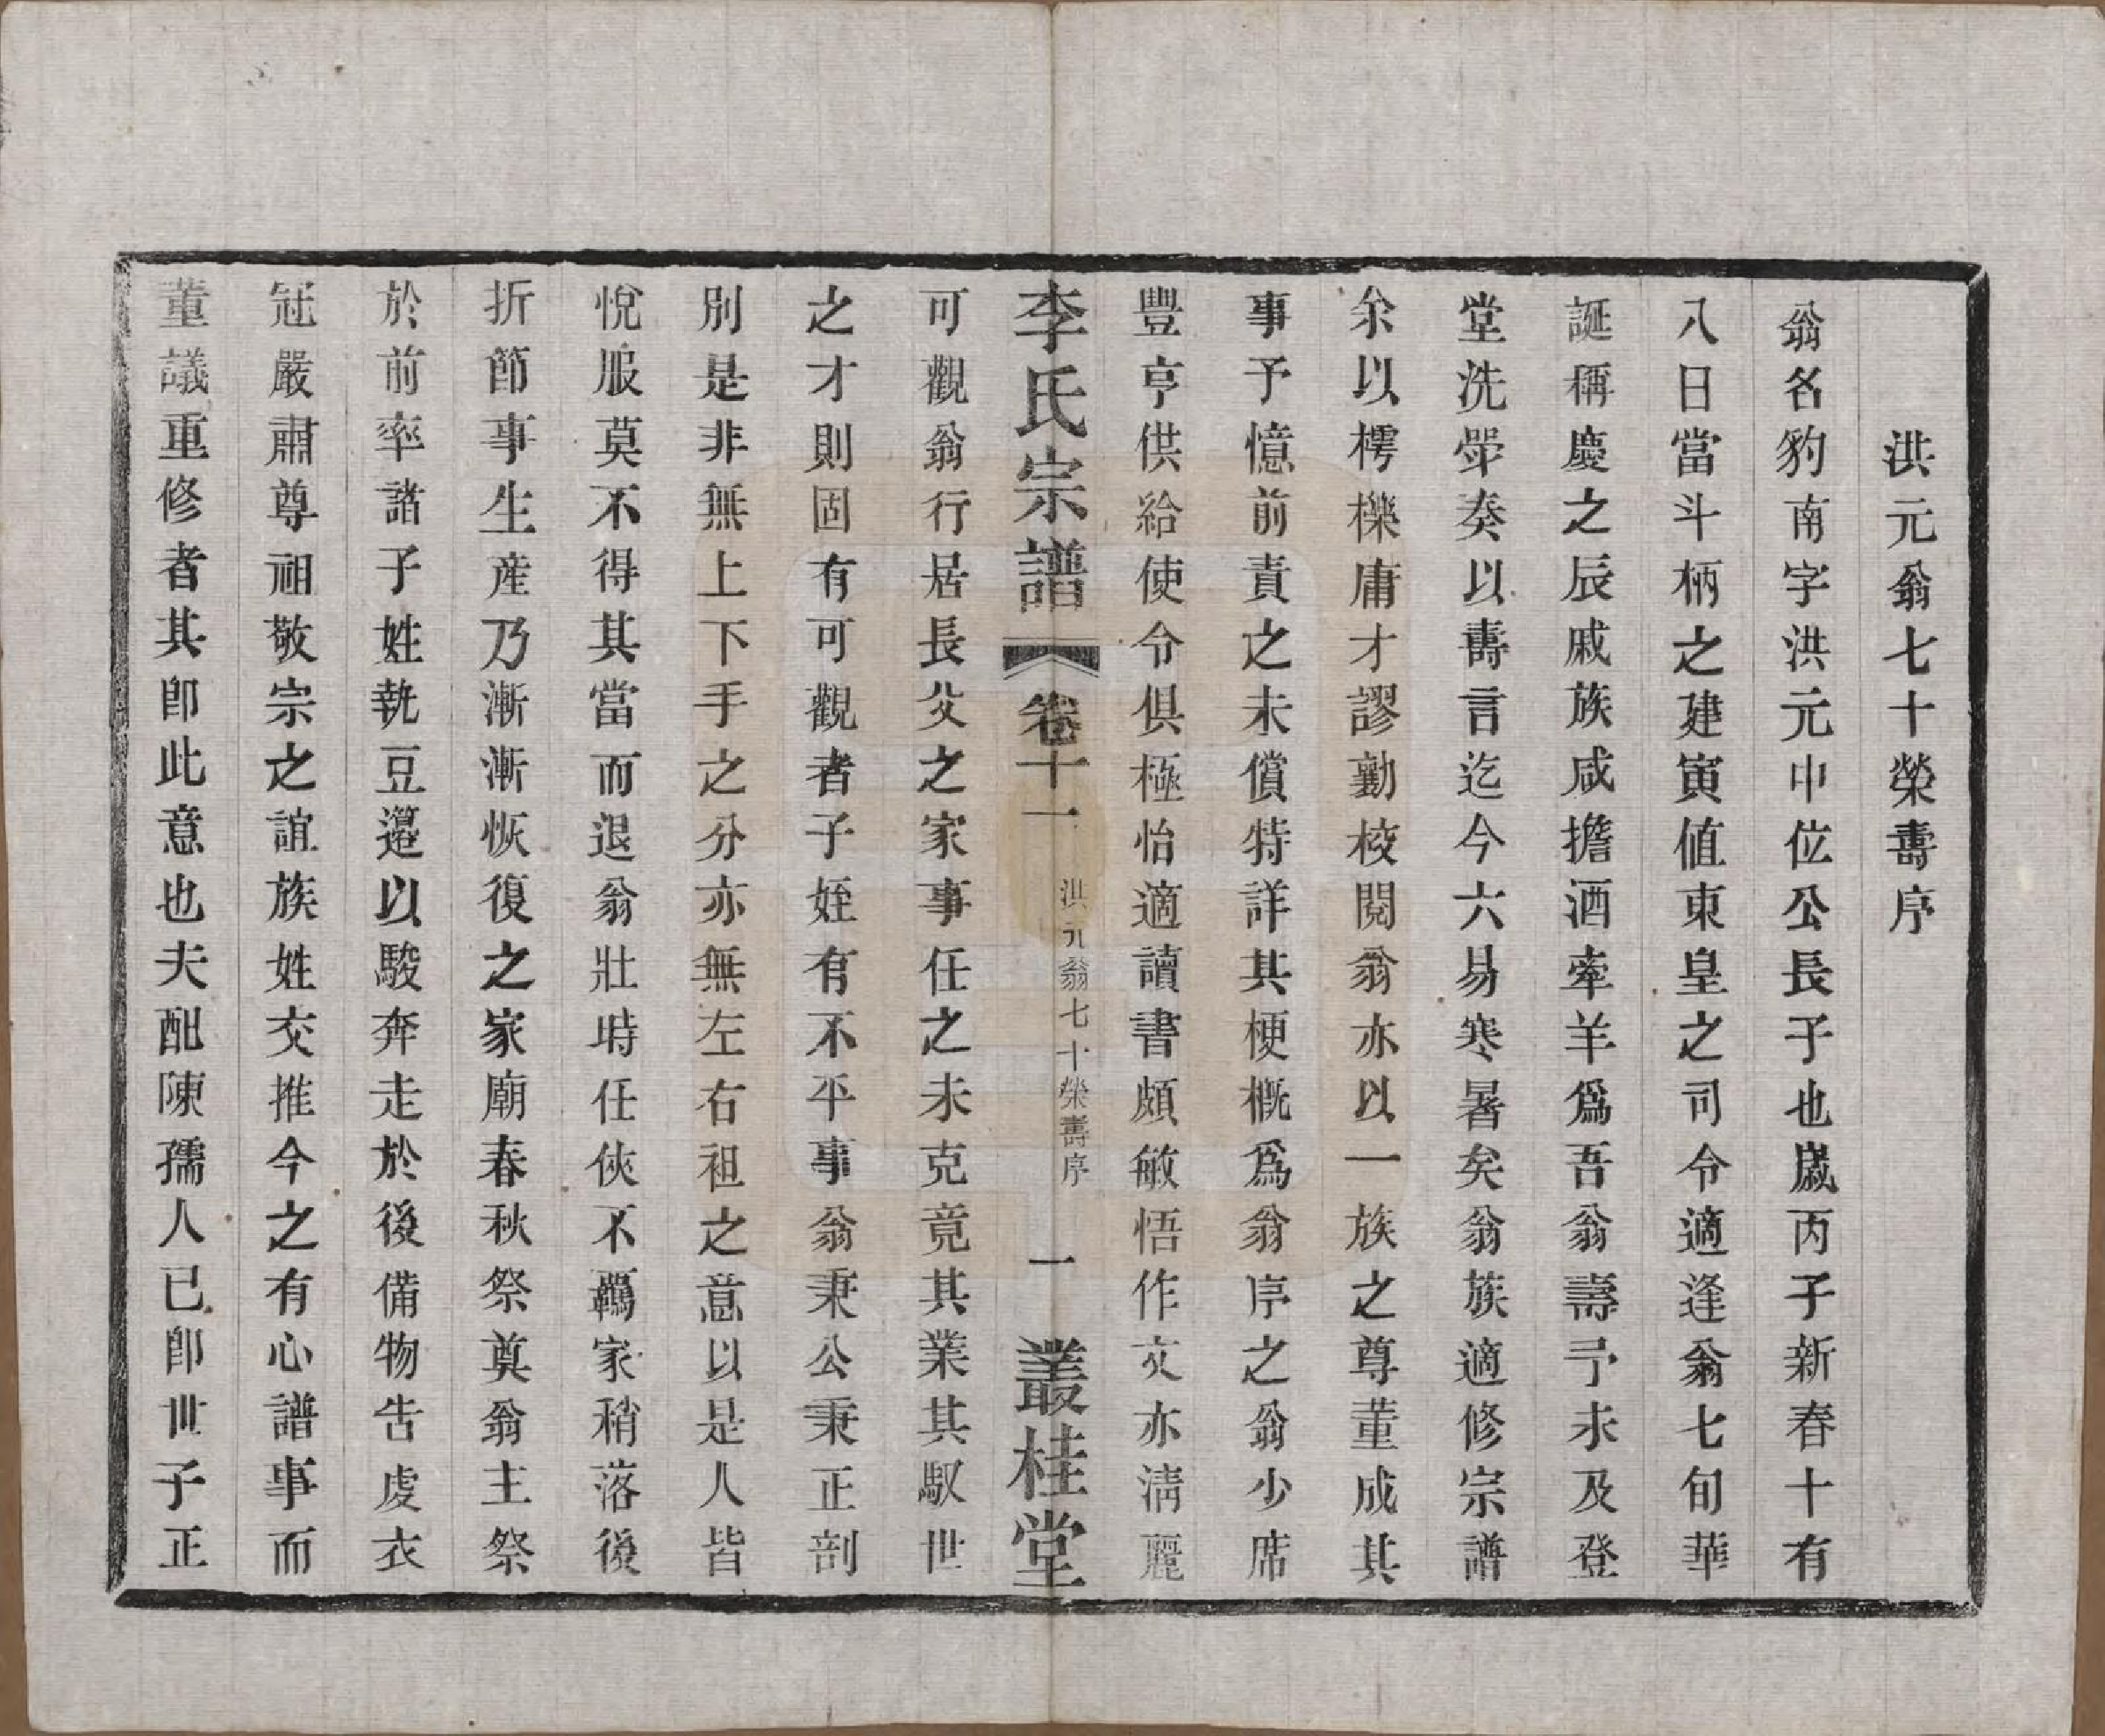 洪元翁七十榮壽序
翁名豹南字洪元中位公長子也歲丙子新春十有
八日當斗柄之建寅值東皇之司令適逢翁七旬華
誕稱慶之辰戚族咸擔酒牽羊爲吾翁壽予未及登
堂洗斝奏以壽言迄今六易寒暑矣翁族適修宗譜
余以樗櫟庸才謬勷校閱翁亦以一族之尊董成其
事予憶前責之未償特詳其梗概爲翁序之翁少席
豐亨供給使令俱極怡適讀書頗敏悟作文亦淸麗
李氏宗譜
卷十一
洪元翁七十榮壽序
一
叢桂堂
可觀翁行居長父之家事任之未克竟其業其馭世
之才則固有可觀者子姪有不平事翁秉公秉正剖
別是非無上下手之分亦無左右袒之意以是人皆
悅服莫不得其當而退翁壯時任俠不羈家稍落後
折節事生産乃漸漸恢復之家廟春秋祭奠翁主祭
於前率諸子姓執豆籩以駿奔走於後備物告虔衣
冠嚴肅尊祖敬宗之誼族姓交推今之有心譜事而
董議重修者其卽此意也夫配陳孺人已卽世子正